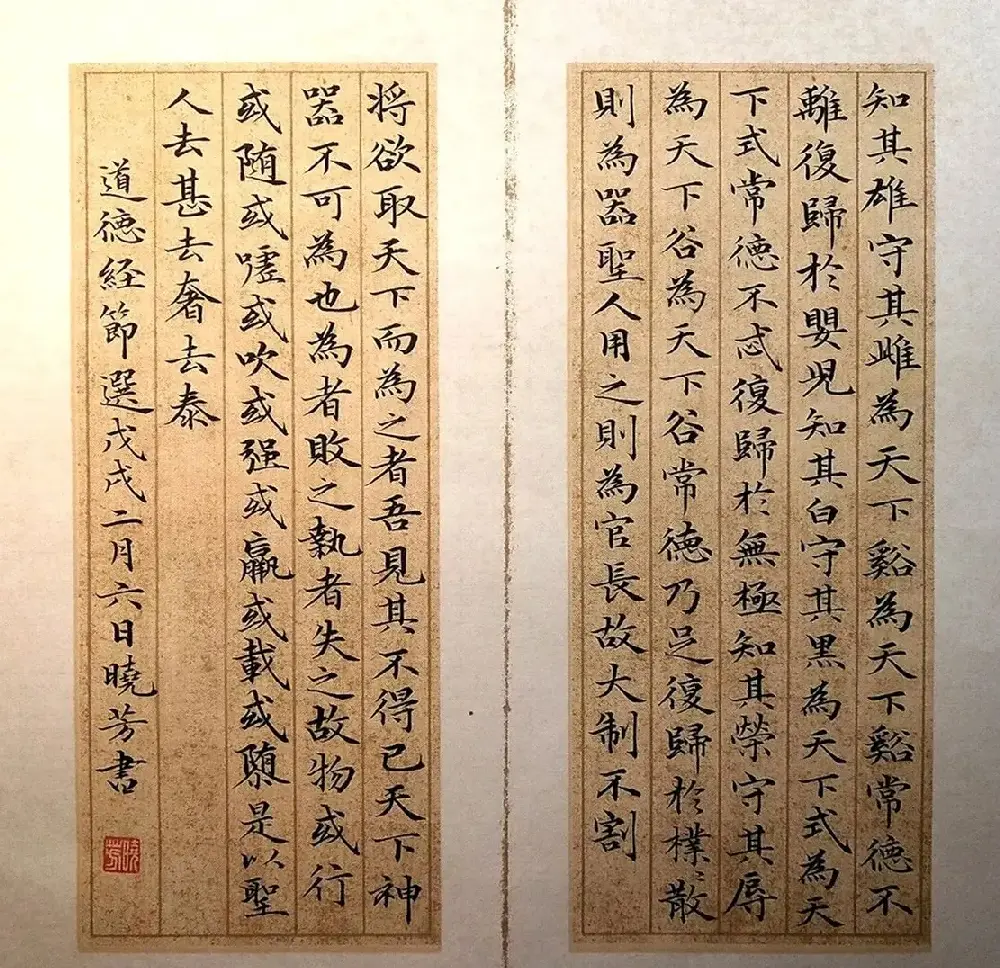 知其雄守其雌為天下谿為天下谿常德不
離復歸於嬰児知其白守其黑為天下式為天
下式常德不忒復歸於無極知其榮守其辱
為天下谷為天下谷常德乃足復歸於樸〻散
則為器聖人用之則為官長故大制不割
将欲取天下而為之者吾見其不得已天下神
器不可為也為者敗之執者失之故物或行
或随或嘘或吹或强或羸或載或隳是以聖
人去甚去奢去泰
道德経節選戊戌二月六日曉芳書
曉芳